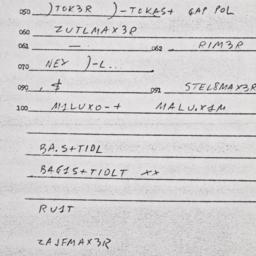 050 )TOK3R )-TOKAS+ GAP POL
060 ZUTLMAX3R
061 — 062 RIM3R
070 NEX )-L...
090 , $ 091 STEL8MAX3R
100 M1LUXO-+ MALU.X1M
BA.S+TIDL
BAG1S+TIDLT xx
RUIT
ZAJFMAX3R